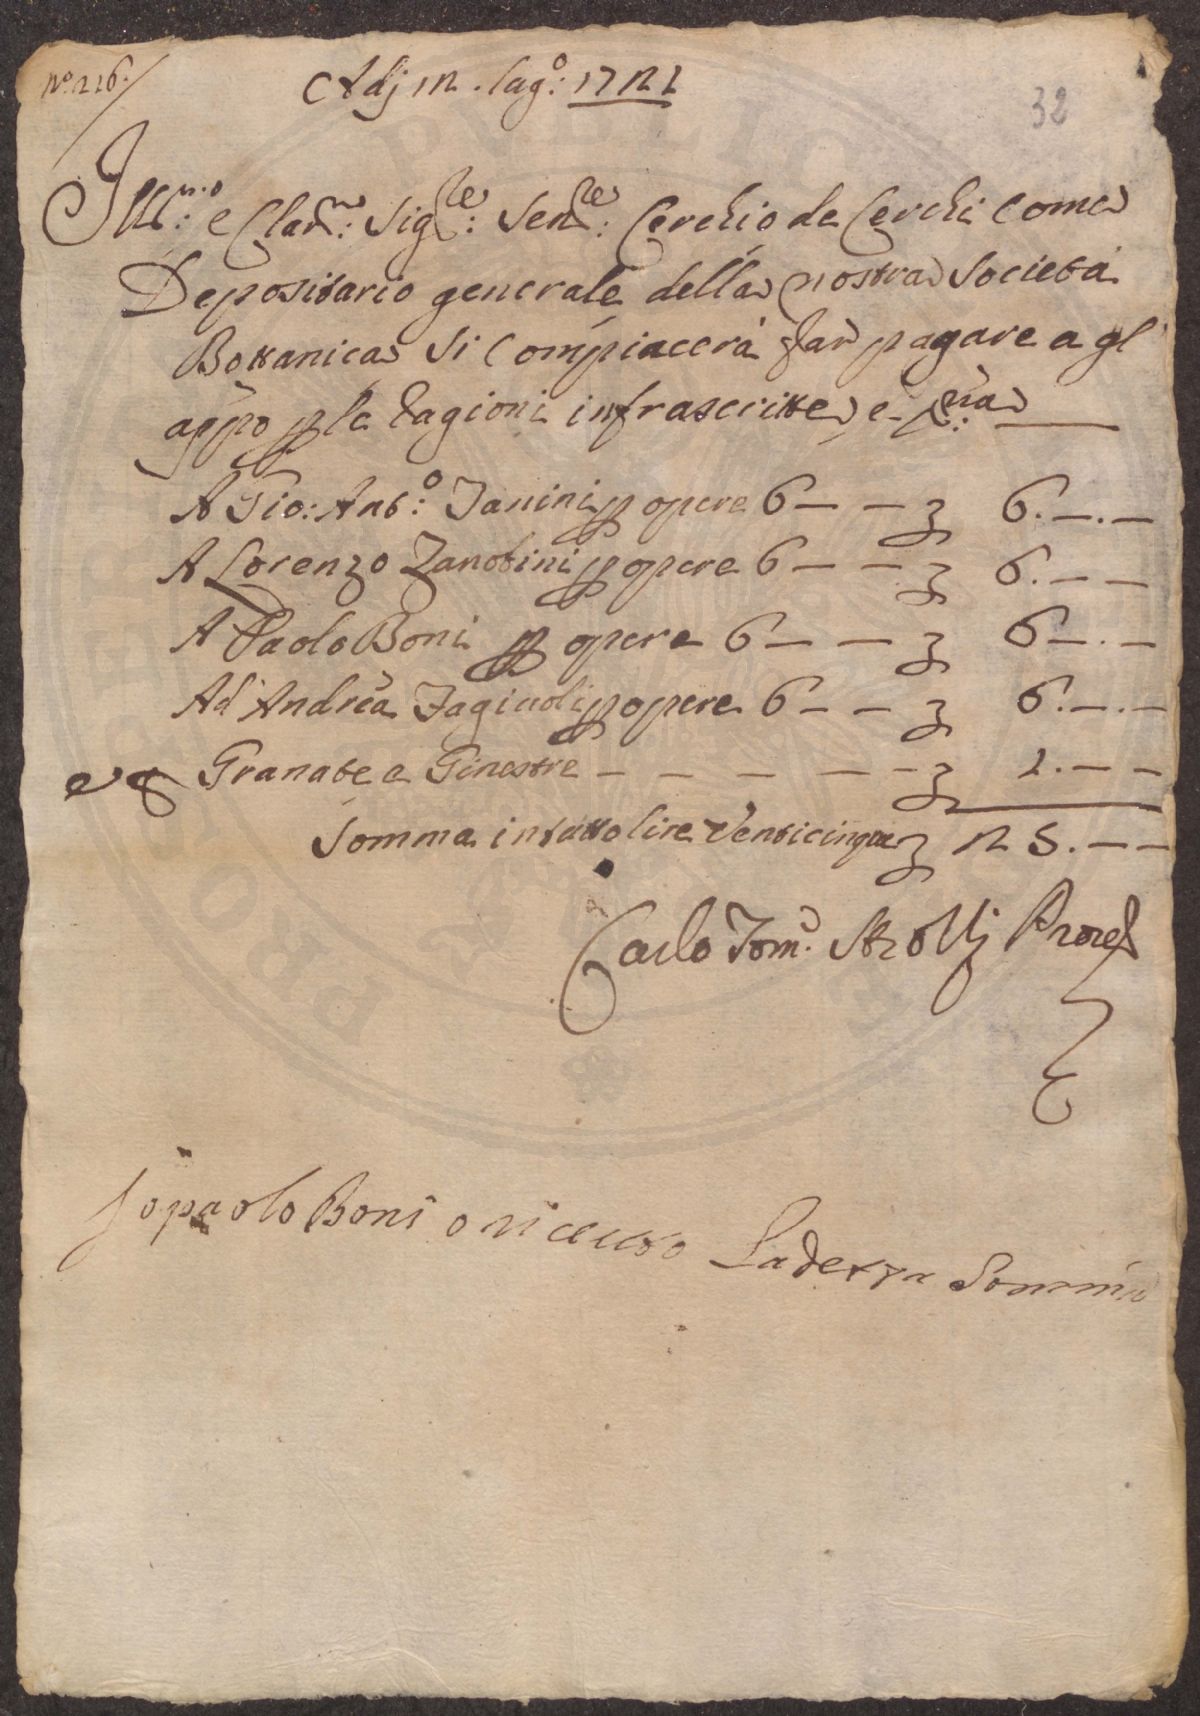 No. 216.
Adj 12. lag.o: 1721
32
Ill.mo: e Clar.mo: Sig.re: Sen.re: Cerchio de Cerchi come
Depositario generale della nostra Società
Bottanica si Compiacerà far pagare a gl'
appo p le Cagioni infrascritte, e p.ma
A Gio: Ant.o: Janini p opere 6 — — 6. —. —
A Lorenzo Zanobini p opere 6 — — 6. — —
A Paolo Boni p opere 6 — — 6 —. —
Ad Andrea Fagiuoli p opere 6 — — 6. —. —
e p Granate e Ginestre — — — — — 1. — —
Somma in tutto lire Venticinque 25. — —
Carlo Tom.o
Io paolo Boni o riceuto La detta Somma